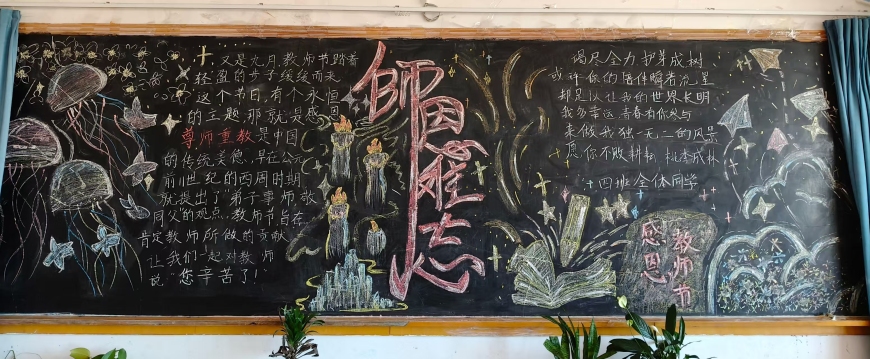 又是九月,教师节踏着
轻盈的步子缓缓而来
这个节日,有个永恒
的主题,那就是感恩
尊师重教是中国
的传统美德,早在公元
前11世纪的西周时期
就提出了"弟子事师,敬
同父"的观点,教师节旨在
肯定教师所做的贡献
让我们一起对教师
说"您辛苦了!"
师恩难忘
竭尽全力 护芽成树
或许你的陪伴瞬若流星
却足以让我的世界长明
我多幸运 青春有你参与
来做我独一无二的风景
愿你不败耕耘 桃李成林
十四班全体同学
教师节
感恩